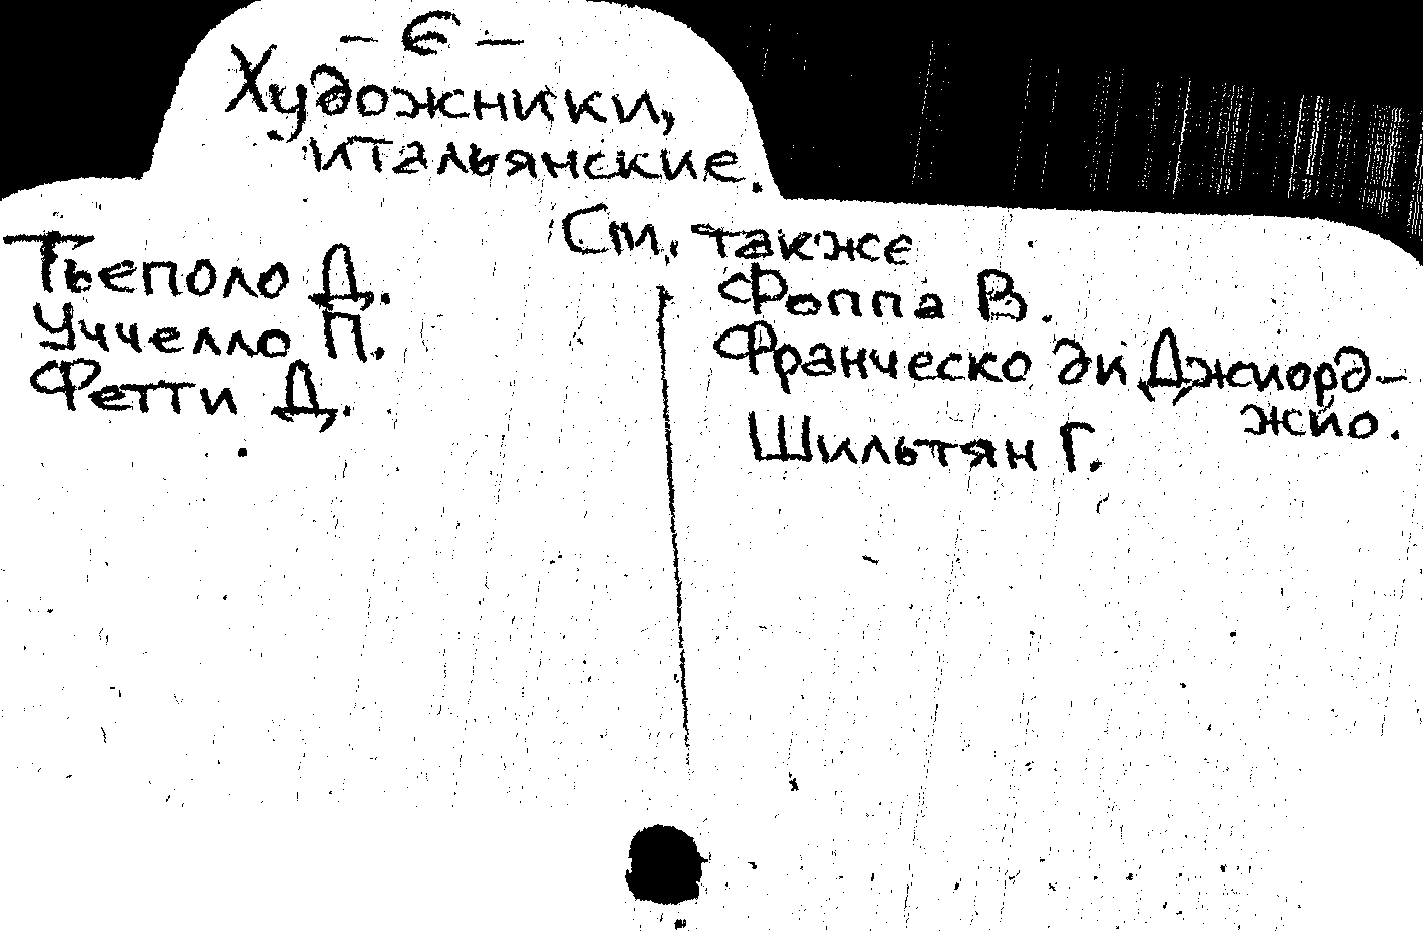 - 6 -
Художники,
итальянские.
См. также
Тьеполо Д.
Уччелло П.
Фетти Д.
Фоппа В.
Франческо ди Джиорд-
жио.
Шильтян Г.